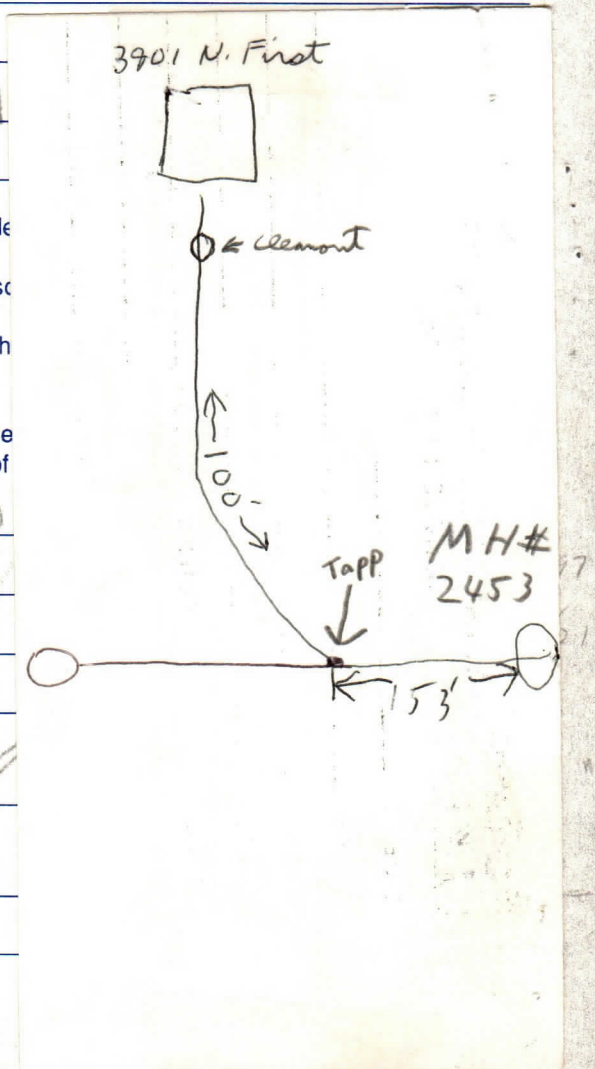 3901 N. First
← cleanout
←100'→
Tapp
MH#
2453
←153'→
le
so
h
e
of